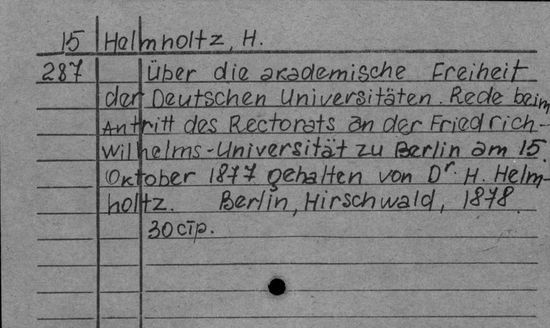 15 Helmholtz, H.
287 Über die akademische Freiheit
der Deutschen Universitäten. Rede beim
Antritt des Rectorats an der Friedrich-
Wilhelms-Universität zu Berlin am 15.
Oktober 1877 gehalten von Dr. H. Helm-
holtz. Berlin, Hirschwald, 1878.
30 стр.